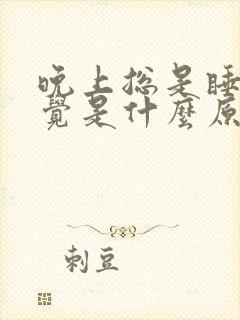 晚上總是睡
覺是什麼原
刺豆